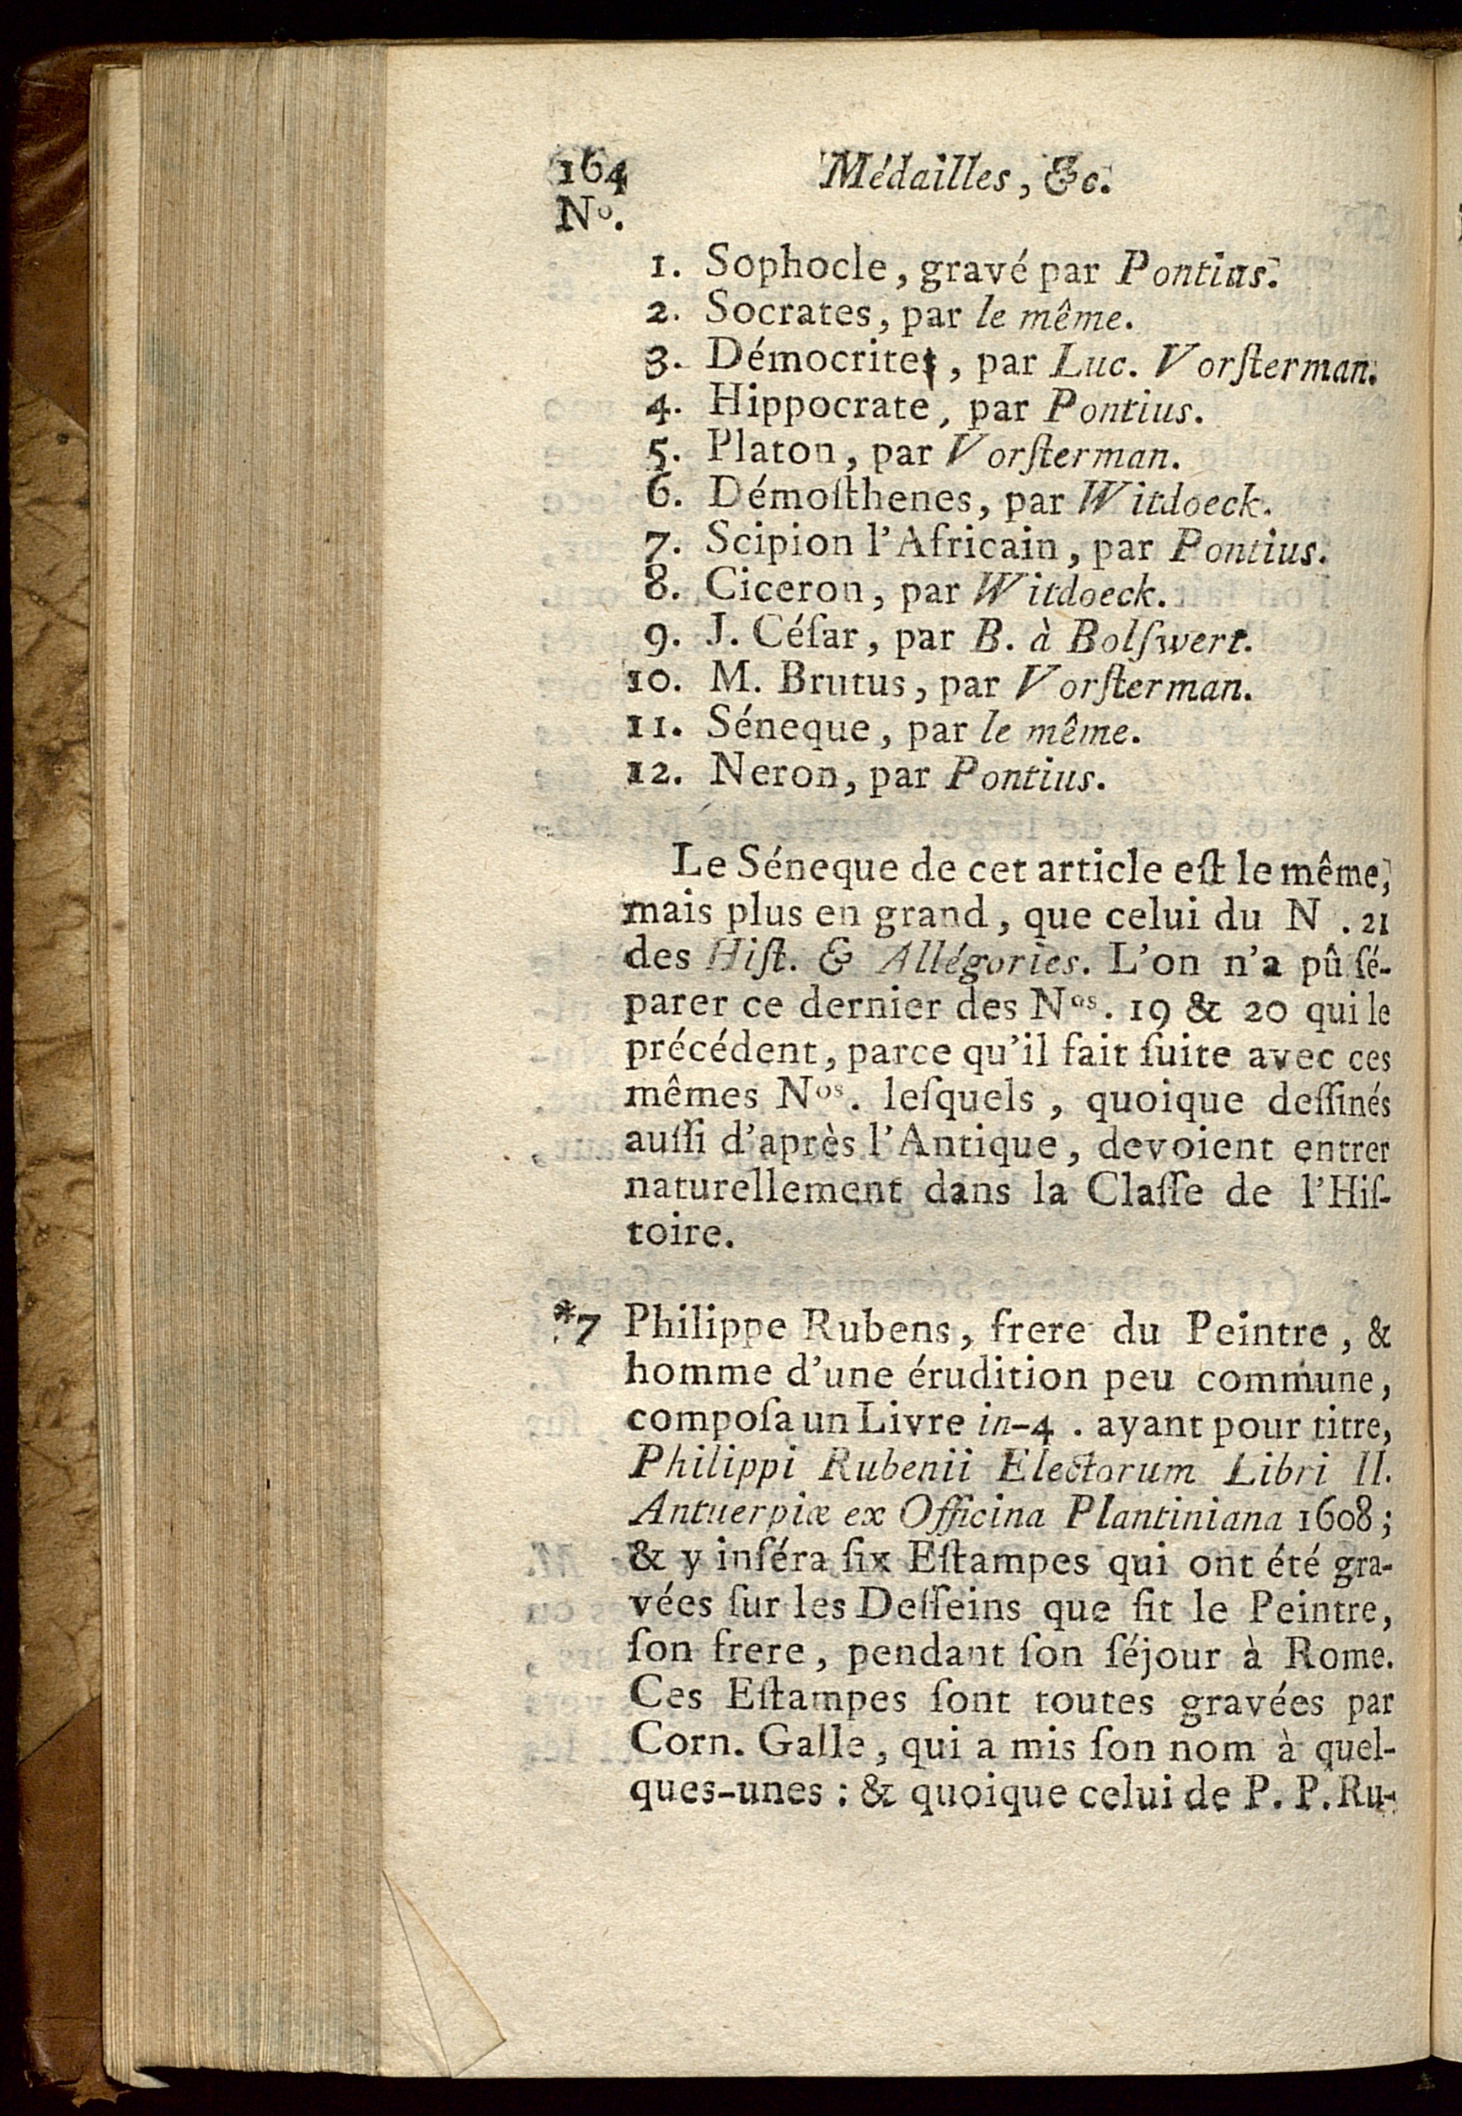 164 Médailles, &c.
Nº.
1. Sophocle, gravé par Pontius.
2. Socrates, par le même.
3. Démocrites, par Luc. Vorſterman.
4. Hippocrate, par Pontius.
5. Platon, par Vorſterman.
6. Démoſthenes, par Witdoeck.
7. Scipion l'Africain, par Pontius.
8. Ciceron, par Witdoeck.
9. J. Céſar, par B. à Bolſwert.
10. M. Brutus, par Vorſterman.
11. Séneque, par le même.
12. Neron, par Pontius.
Le Séneque de cet article eſt le même,
mais plus en grand, que celui du N . 21
des Hiſt. & Allégories. L'on n'a pû ſé-
parer ce dernier des Nos. 19 & 20 qui le
précédent, parce qu'il fait ſuite avec ces
mêmes Nos. leſquels, quoique deſſinés
auſſi d'après l'Antique, devoient entrer
naturellement dans la Claſſe de l'Hiſ-
toire.
*7 Philippe Rubens, frere du Peintre, &
homme d'une érudition peu commune,
compoſa un Livre in-4 . ayant pour titre,
Philippi Rubenii Electorum Libri II.
Antuerpiæ ex Officina Plantiniana 1608;
& y inſéra ſix Eſtampes qui ont été gra-
vées ſur les Deſſeins que fit le Peintre,
ſon frere, pendant ſon ſéjour à Rome.
Ces Eſtampes ſont toutes gravées par
Corn. Galle, qui a mis ſon nom à quel-
ques-unes : & quoique celui de P. P. Ru-